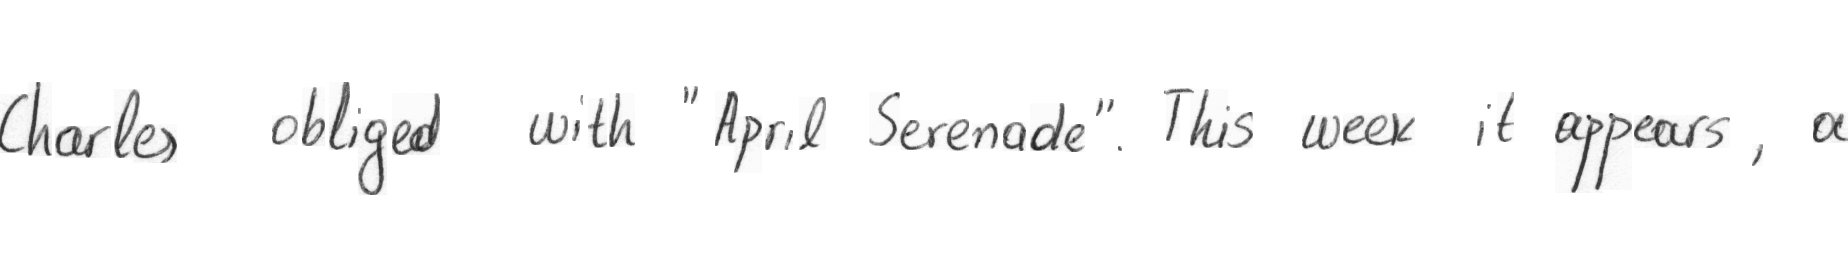 Charles obliged with "April Serenade". This week it appears, a